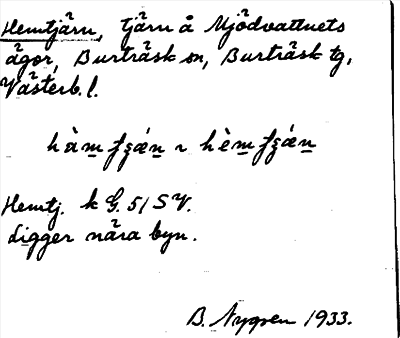 Hemtjärn, tjärn å Mjödvattnets
ägor, Burträsk sn, Burträsk tg,
Västerb. l.
Hemtj. k G. 51 SV.
ligger nära byn.
B. Nygren 1933.